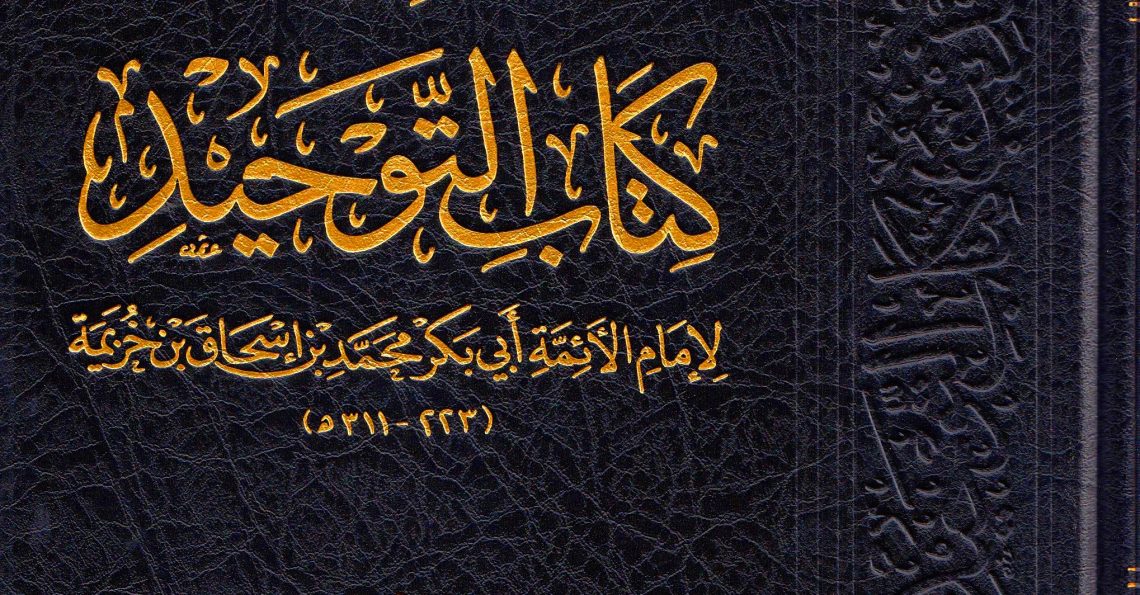 كِتَابِ التَّوْحِيْدِ
لِإِمَامِ الأَئِمَّةِ أَبِي بَكْرٍ مُحَمَّدِ بْنِ إِسْحَاقَ بْنِ خُزَيْمَةَ
(٢٢٣ - ٣١١ هـ)